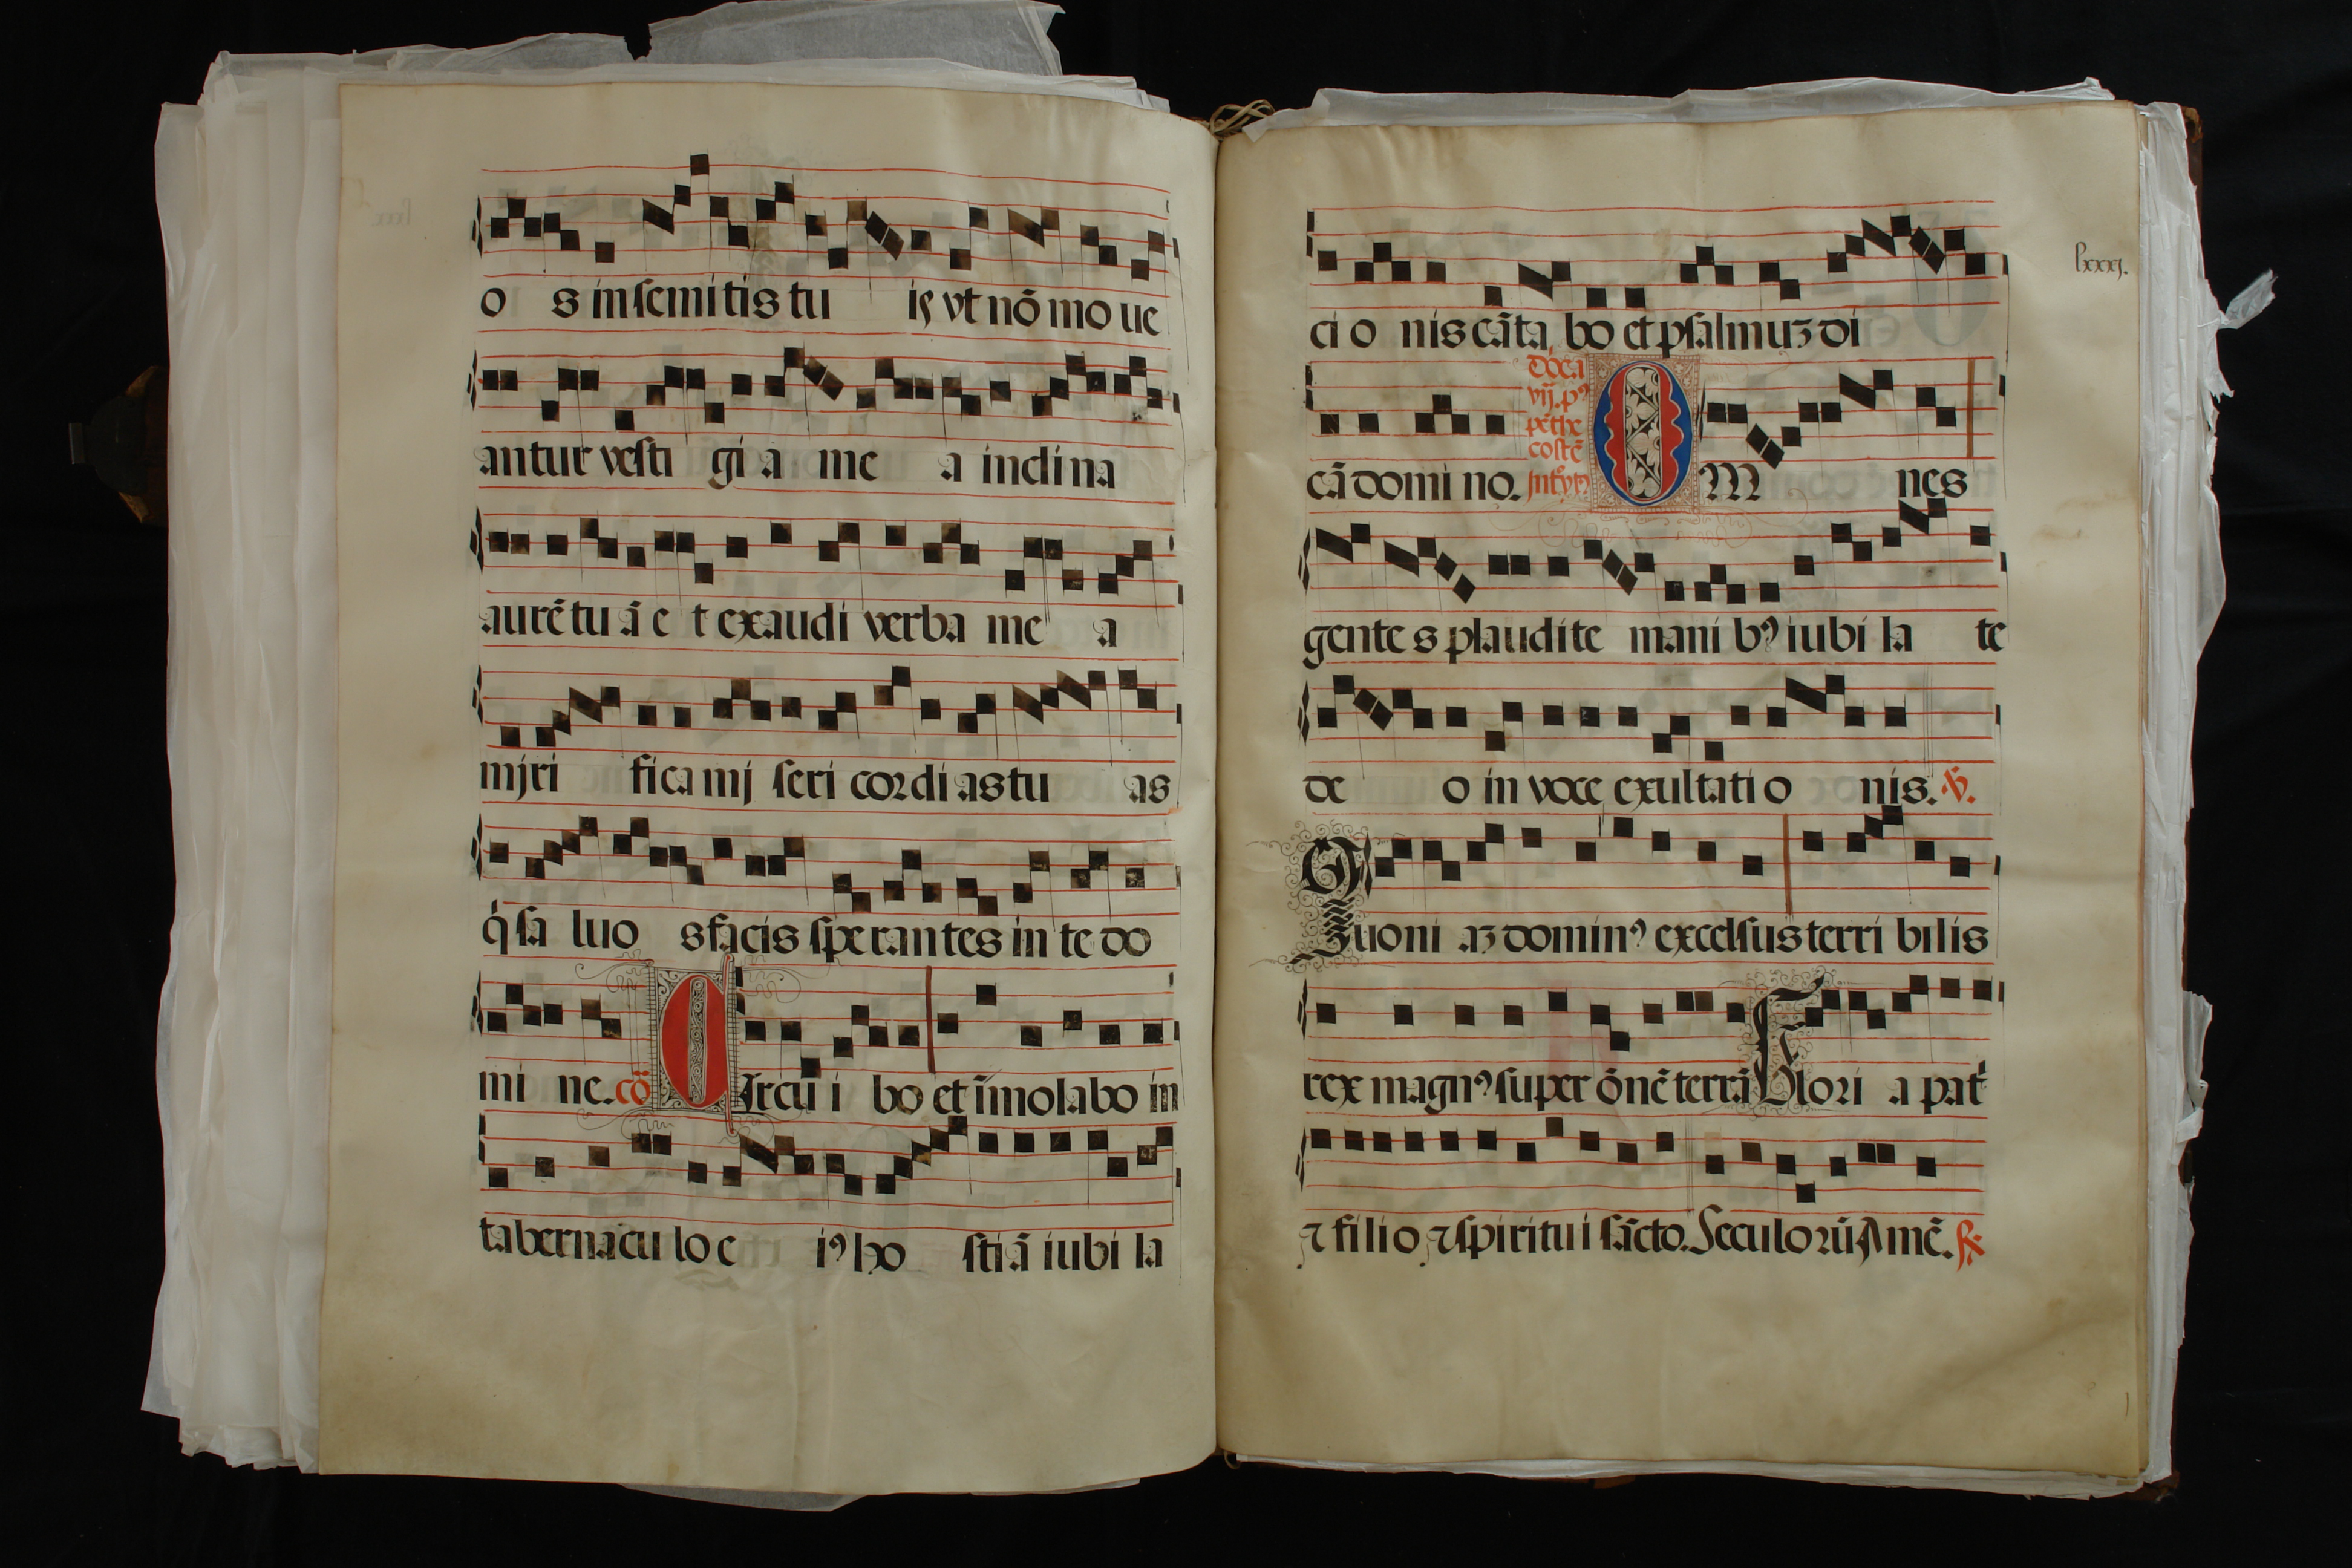 o s in semitis tu is vt nō mo ue
antur vesti gi a me a inclina
aurē tu ā e t exaudi verba me a
mjri fica mj seri cordi as tu as
q̇ sa luo s facis sperantes in te do
mi ne. cō Circu i bo et īmolabo in
tabernaculo e iꝰ ho stiā iubi la
lxxxj.
ci o nis cāta bo et psalmuʒ di
cā domi no. dōca vij. pꝰ pēthe costē Omnes
gente s plaudite mani bꝰ iubi la te
de o in voce exultati o nis. V̄.
Quoni aʒ dominꝰ excelsus terri bilis
rex magnꝰ super ōnē terrā Glori a pat̄
⁊ filio ⁊ spiritui sācto. Seculorū Amē. R.